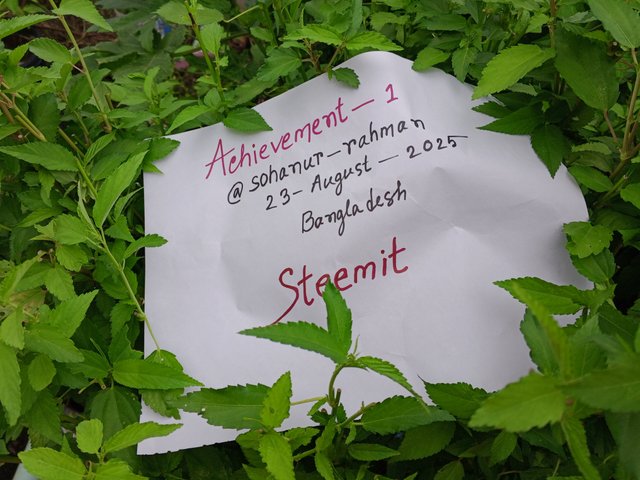 Achievement - 1
@sohanur-rahman
23- August - 2025
Bangladesh
Steemit